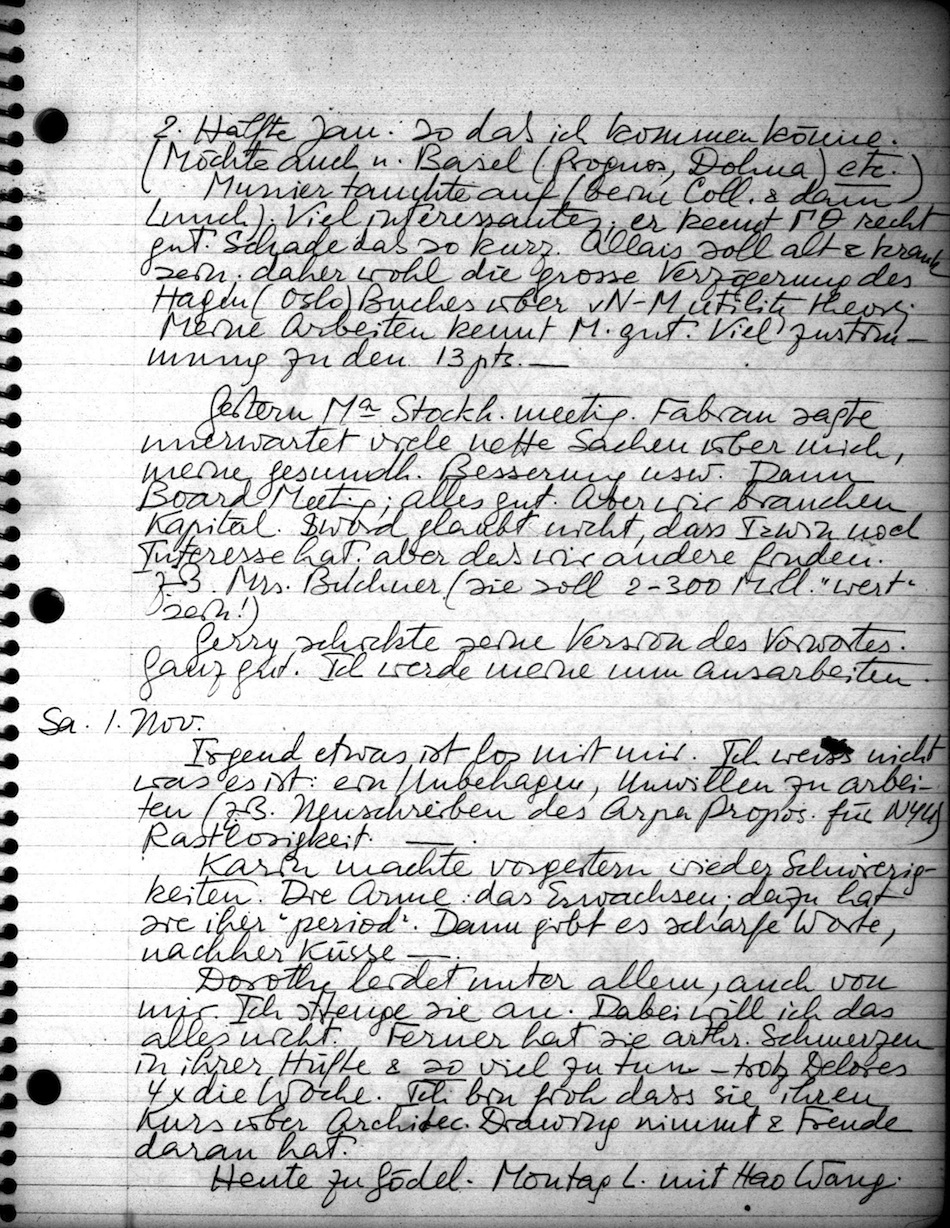 2. Hälfte Jan. so das ich kommen könne.
(Möchte auch n. Basel (Prognos, Dohna) etc.)
Munier tauchte auf (beim Coll. & dann
Lunch). Viel interessantes. er kennt ΓΘ recht
gut. Schade das so kurz. Allais soll alt & krank
sein. daher wohl die grosse Verzögerung des
Hagen (Oslo) Buches über vN-M utility theory.
Meine Arbeiten kennt M. gut. Viel zustim-
mung zu den 13 pts. —
Gestern Ma Stockh. meetig. Fabian sagte
unerwartet viele nette Sachen über mich,
meine gesundh. Besserung usw. Dann
Board Meeting; alles gut. Aber wir brauchen
Kapital. glaubt nicht, dass Irwin noch
Interesse hat. aber das wir andere finden.
z.B. Mrs. Buchner (sie soll 2-300 Mill. "wert"
sein!)
Gerry schickte seine Version des Vorwortes.
Ganz gut. Ich werde meine nun ausarbeiten.
Sa. 1. Nov.
Irgend etwas ist los mit mir. Ich weiss nicht
was es ist: ein Unbehagen, Unwillen zu arbei-
ten (z.B. Neuschreiben des Arpa Propos. für NYU)
Rastlosigkeit. —
Karin machte vorgestern wieder Schwierig-
keiten. Die Arme: das Erwachsen; dazu hat
sie iher "period". Dann gibt es scharfe Worte,
nachher Küsse —.
Dorothy leidet unter allem, auch von
mir. Ich strenge sie an. Dabei will ich das
alles nicht. Ferner hat sie arthr. Schmerzen
in ihrer Hüfte & so viel zu tun – trotz Delores
4x die Woche. Ich bin froh dass sie ihren
Kurs über Architec. Drawing nimmt & Freude
daran hat.
Heute zu Gödel. Montag L. mit Hao Wang.